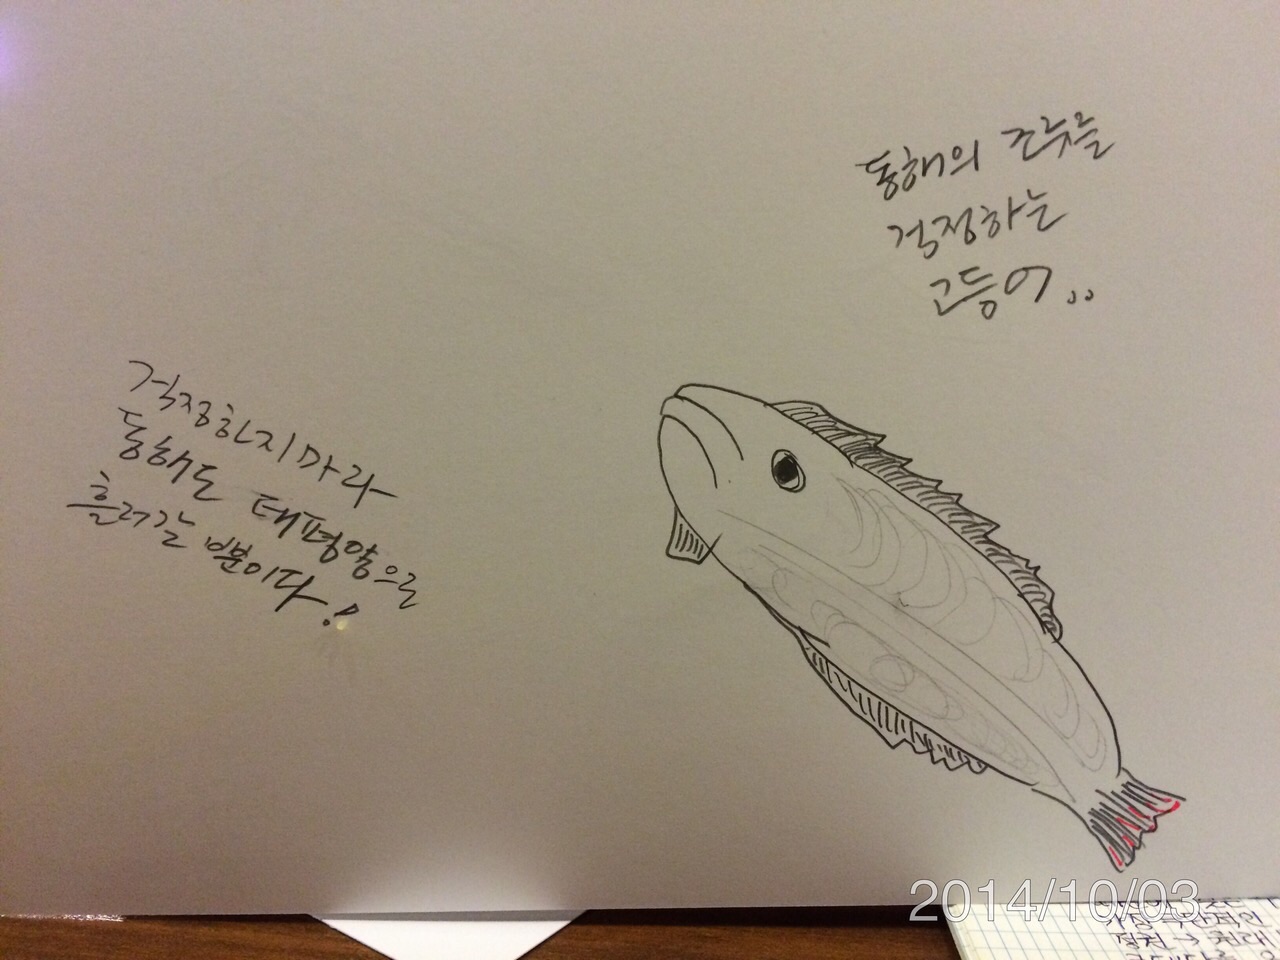 동해의 조류를
걱정하는
고등어..
걱정하지마라
동해도 태평양으로
흘러갈 뿐이다!
2014/10/03